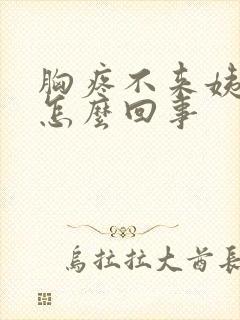 胸疼不来姨
怎麼回事
烏拉拉大酋長